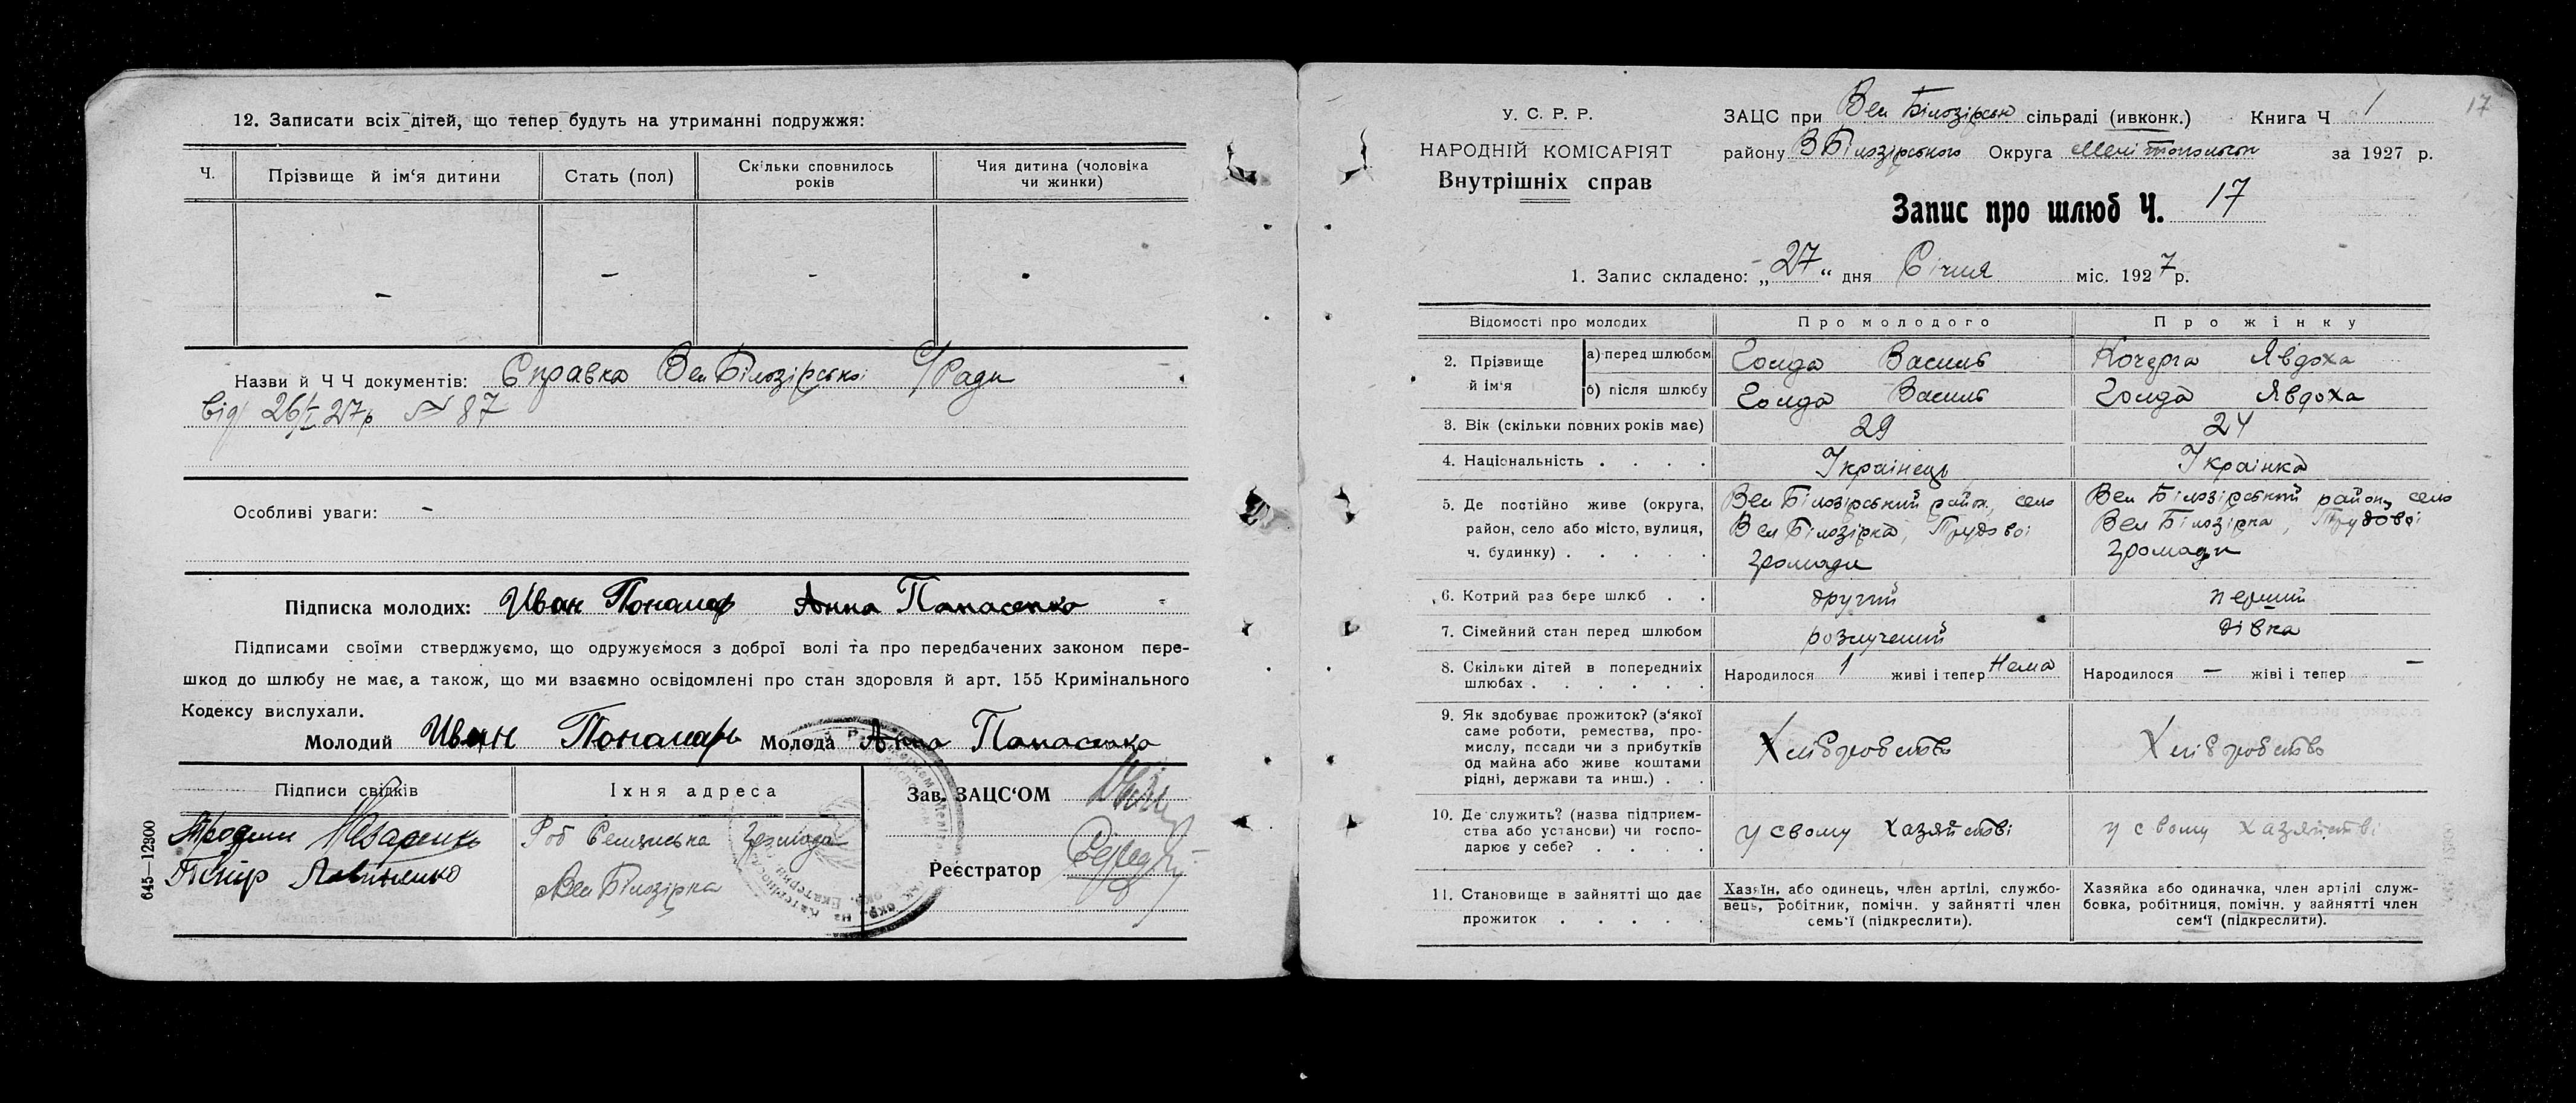 12. Записати всіх дітей, що тепер будуть на утриманні подружжя:
Ч.
Прізвище й ім'я дитини
Стать (пол)
Скільки сповнилось років
Чия дитина (чоловіка чи жинки)
– – - -
Назви й Ч Ч документів: Справка Вел Білозірської С/Ради
від 26/I 27р N 87
Особливі уваги: –
Підписка молодих: Иван Пономарь Анна Панасенко
Підписами своїми стверджуємо, що одружуємося з доброї волі та про передбачених законом пере-
шкод до шлюбу не має, а також, що ми взаємно освідомлені про стан здоровля й арт. 155 Кримінального
Кодексу вислухали.
Молодий Иван Пономарь Молода Анна Панасенко
Підписи свідків
Їхня адреса
Зав. ЗАЦС'ОМ
Назаренко
Роб Селянська Громада
Вел Білозірка
Реєстратор
645—12300
17
У. С. Р. Р.
НАРОДНІЙ КОМІСАРІЯТ
Внутрішніх справ
ЗАЦС при Вел Білозірськ сільраді (ивконк.) Книга Ч 1
району ВБілозірського Округа Мелітопольськ за 1927 р.
Запис про шлюб Ч. 17
1. Запис складено: „27“ дня Січня міс. 1927 р.
Відомості про молодих
Про молодого
Про жінку
2. Прізвище й ім'я
а) перед шлюбом Гоида Василь Кочерга Явдоха
б) після шлюбу Гоида Василь Гоида Явдоха
3. Вік (скільки повних років має) 29 24
4. Національність . . . . Українець Українка
5. Де постійно живе (округа, район, село або місто, вулиця, ч. будинку) . . . . .
Вел Білозірський район, село
Вел Білозірка, Трудової
громади
Вел Білозірський район, село
Вел Білозірка, Трудової
громади
6. Котрий раз бере шлюб . . другий перший
7. Сімейний стан перед шлюбом розлучений дівка
8. Скільки дітей в попередниіх шлюбах . . . . . .
Народилося 1 живі і тепер Нема
Народилося — жіві і тепер —
9. Як здобуває прожиток? (з'якої
саме роботи, ремества, про-
мислу, посади чи з прибутків
од майна або живе коштами
рідні, держави та инш.) . .
Хліборобство
Хліборобство
10. Де служить? (назва підприєм-
ства або установи) чи госпо-
дарює у себе? . . . .
у свому хазяйстві
у свому хазяйстві
11. Становище в зайнятті що дає
прожиток . . . . .
Хазяїн, або одинець, член артілі, службо-
вець, робітник, помічн. у зайнятті член
семь'ї (підкреслити).
Хазяйка або одиначка, член артілі служ-
бовка, робітниця, помічн. у зайнятті член
сем'ї (підкреслити).